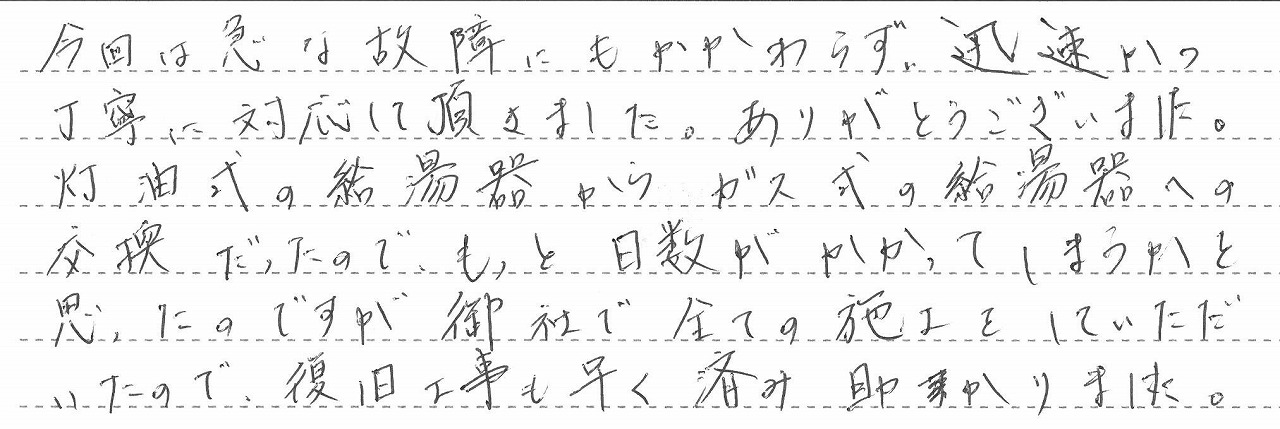 今回は急な故障にもかかわらず、迅速かつ
丁寧に対応して頂きました。ありがとうございました。
灯油式の給湯器からガス式の給湯器への
交換だったので、もっと日数がかかってしまうかと
思ったのですが御社で全ての施工をしていただ
いたので、復旧工事も早く済み助かりました。